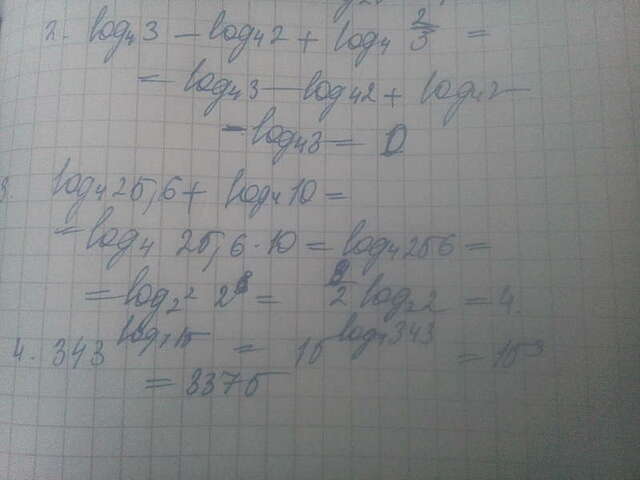 2. log₄3 − log₄2 + log₄ 2/3 =
= log₄3 − log₄2 + log₄2 −
− log₄3 = 0
3. log₄25,6 + log₄10 =
= log₄ 25,6 · 10 = log₄256 =
= log₂² 2⁸ = 8/2 log₂2 = 4.
4. 343^log₇15 = 15^log₇343 = 15³
= 3375